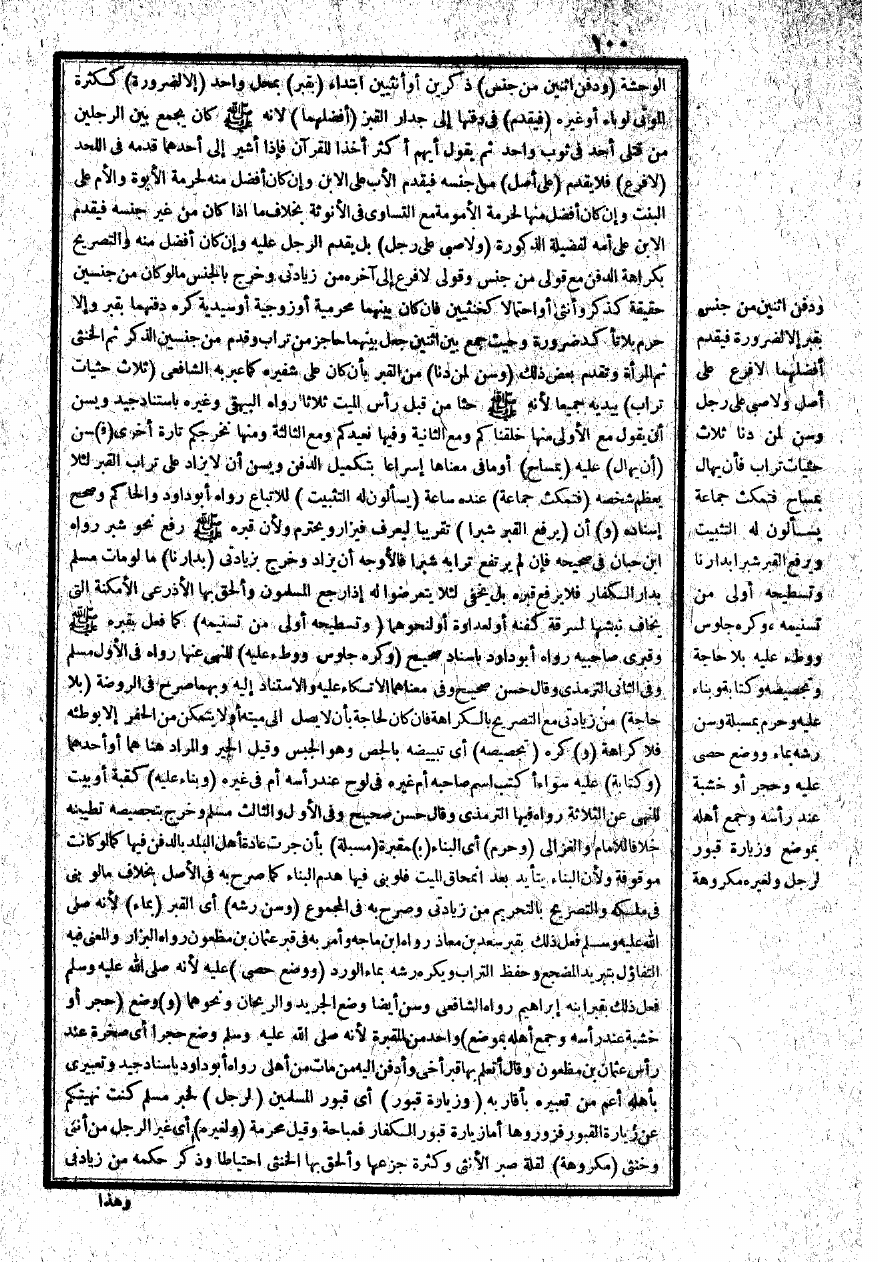 ١٠٠
الوحشة (ودفن اثنين من جنس) ذكرين أو أنثيين ابتداء (بقبر) بمحل واحد (إلا لضرورة) ككثرة
الموتى لوباء أو غيره (فيقدم) فى دفنها إلى جدار القبر (أفضلهما) لأنه ﷺ كان يجمع بين الرجلين
من قتلى أحد فى ثوب واحد ثم يقول أيهم أكثر أخذا للقرآن فإذا أشير إلى أحدهما قدمه فى اللحد
(لا فرع) فلا يقدم (على أصل) من جنسه فيقدم الأب على الابن وإن كان أفضل منه لحرمة الأبوة والأم على
البنت وإن كان أفضل منها لحرمة الأمومة مع التساوى فى الأنوثة بخلاف ما اذا كان من غير جنسه فيقدم
الابن على أمه لفضيلة الذكورة (ولا صبى على رجل) بل يقدم الرجل عليه وإن كان أفضل منه والتصريح
بكراهة الدفن مع قولى من جنس وقولى لا فرع إلى آخره من زيادتى وخرج بالجنس ما لو كان من جنسين
حقيقة كذكر وأنثى أو احتمالا كخنثيين فان كان بينهما محرمية أو زوجية أو سيدية كره دفنهما بقبر وإلا
حرم بلا تأكد ضرورة وحيث جمع بين اثنين جعل بينهما حاجز من تراب وقدم من جنسين الذكر ثم الخنثى
ثم المرأة وتقدم بعض ذلك (وسن لمن دنا) من القبر بأن كان على شفيره كما عبر به الشافعى (ثلاث حثيات
تراب) بيديه جميعا لأنه ﷺ حثا من قبل رأس الميت ثلاثا رواه البيهقى وغيره باسناد جيد ويسن
أن يقول مع الأولى منها خلقناكم ومع الثانية وفيها نعيدكم ومع الثالثة ومنها نخرجكم تارة أخرى (و) سن
(أن يهال) عليه (بمساح) أو ما فى معناها إسراعا بتكميل الدفن ويسن أن لا يزاد على تراب القبر لئلا
يعظم شخصه (فتمكث جماعة) عنده ساعة (يسألون له التثبيت) للاتباع رواه أبو داود والحاكم وصحح
إسناده (و) أن (يرفع القبر شبرا) تقريبا ليعرف فيزار ويحترم ولأن قبره ﷺ رفع نحو شبر رواه
ابن حبان فى صحيحه فإن لم يرتفع ترابه شبرا فالأوجه أن يزاد وخرج بزيادتى (بدارنا) ما لو مات مسلم
بدار الكفار فلا يرفع قبره بل يخفى لئلا يتعرضوا له إذا رجع المسلمون وألحق بها الأذرعى الأمكنة التى
يخاف نبشها لسرقة كفنه أو لعداوة أو لنحوهما (وتسطيحه أولى من تسنيمه) كما فعل بقبره ﷺ
وقبرى صاحبيه رواه أبو داود باسناد صحيح (وكره جلوس ووطء عليه) للنهى عنها رواه فى الأول مسلم
وفى الثانى الترمذى وقال حسن صحيح وفى معناهما الاتكاء عليه والاستناد إليه وبهما صرح فى الروضة (بلا
حاجة) من زيادتى مع التصريح بالكراهة فان كان لحاجة بأن لا يصل الى ميته أو لا يتمكن من الحفر إلا بوطئه
فلا كراهة (و) كره (تجصيصه) أى تبييضه بالجص وهو الجبس وقيل الجير والمراد هنا هما أو أحدهما
(وكتابة) عليه سواء أكتب اسم صاحبه أم غيره فى لوح عند رأسه أم فى غيره (وبناء عليه) كقبة أو بيت
للنهى عن الثلاثة رواه فيها الترمذى وقال حسن صحيح وفى الأول والثالث مسلم وخرج بتجصيصه تطيينه
خلافا للامام والغزالى (وحرم) أى البناء (ب) مقبرة (مسبلة) بأن جرت عادة أهل البلد بالدفن فيها كما لو كانت
موقوفة ولأن البناء يتأبد بعد انمحاق الميت فلو بنى فيها هدم البناء كما صرح به فى الأصل بخلاف ما لو بنى
فى ملكه والتصريح بالتحريم من زيادتى وصرح به فى المجموع (وسن رشه) أى القبر (بماء) لأنه صلى
الله عليه وسلم فعل ذلك بقبر سعد بن معاذ رواه ابن ماجه وأمر به فى قبر عثمان بن مظعون رواه البزار والمعنى فيه
التفاؤل بتبريد المضجع وحفظ التراب ويكره رشه بماء الورد (ووضع حصى) عليه لأنه صلى الله عليه وسلم
فعل ذلك بقبر ابنه إبراهيم رواه الشافعى وسن أيضا وضع الجريد والريحان ونحوهما (و) وضع (حجر أو
خشبة عند رأسه وجمع أهله بموضع) واحد من المقبرة لأنه صلى الله عليه وسلم وضع حجرا أى صخرة عند
رأس عثمان بن مظعون وقال أتعلم بها قبر أخى وأدفن اليه من مات من أهلى رواه أبو داود باسناد جيد وتعبيرى
بأهله أعم من تعبيره بأقاربه (وزيارة قبور) أى قبور المسلمين (لرجل) لخبر مسلم كنت نهيتكم
عن زيارة القبور فزوروها أما زيارة قبور الكفار فمباحة وقيل محرمة (ولغيره) أى غير الرجل من أنثى
وخنثى (مكروهة) لقلة صبر الأنثى وكثرة جزعها وألحق بها الخنثى احتياطا وذكر حكمه من زيادتى
وهذا
ودفن اثنين من جنس
بقبر إلا لضرورة فيقدم
أفضلهما لا فرع على
أصل ولا صبى على رجل
وسن لمن دنا ثلاث
حثيات تراب فأن يهال
بمساح فتمكث جماعة
يسألون له التثبيت
ويرفع القبر شبرا بدارنا
وتسطيحه أولى من
تسنيمه وكره جلوس
ووطء عليه بلا حاجة
وتجصيصه وكتابة وبناء
عليه وحرم بمسبلة وسن
رشه بماء ووضع حصى
عليه وحجر أو خشبة
عند رأسه وجمع أهله
بموضع وزيارة قبور
لرجل ولغيره مكروهة